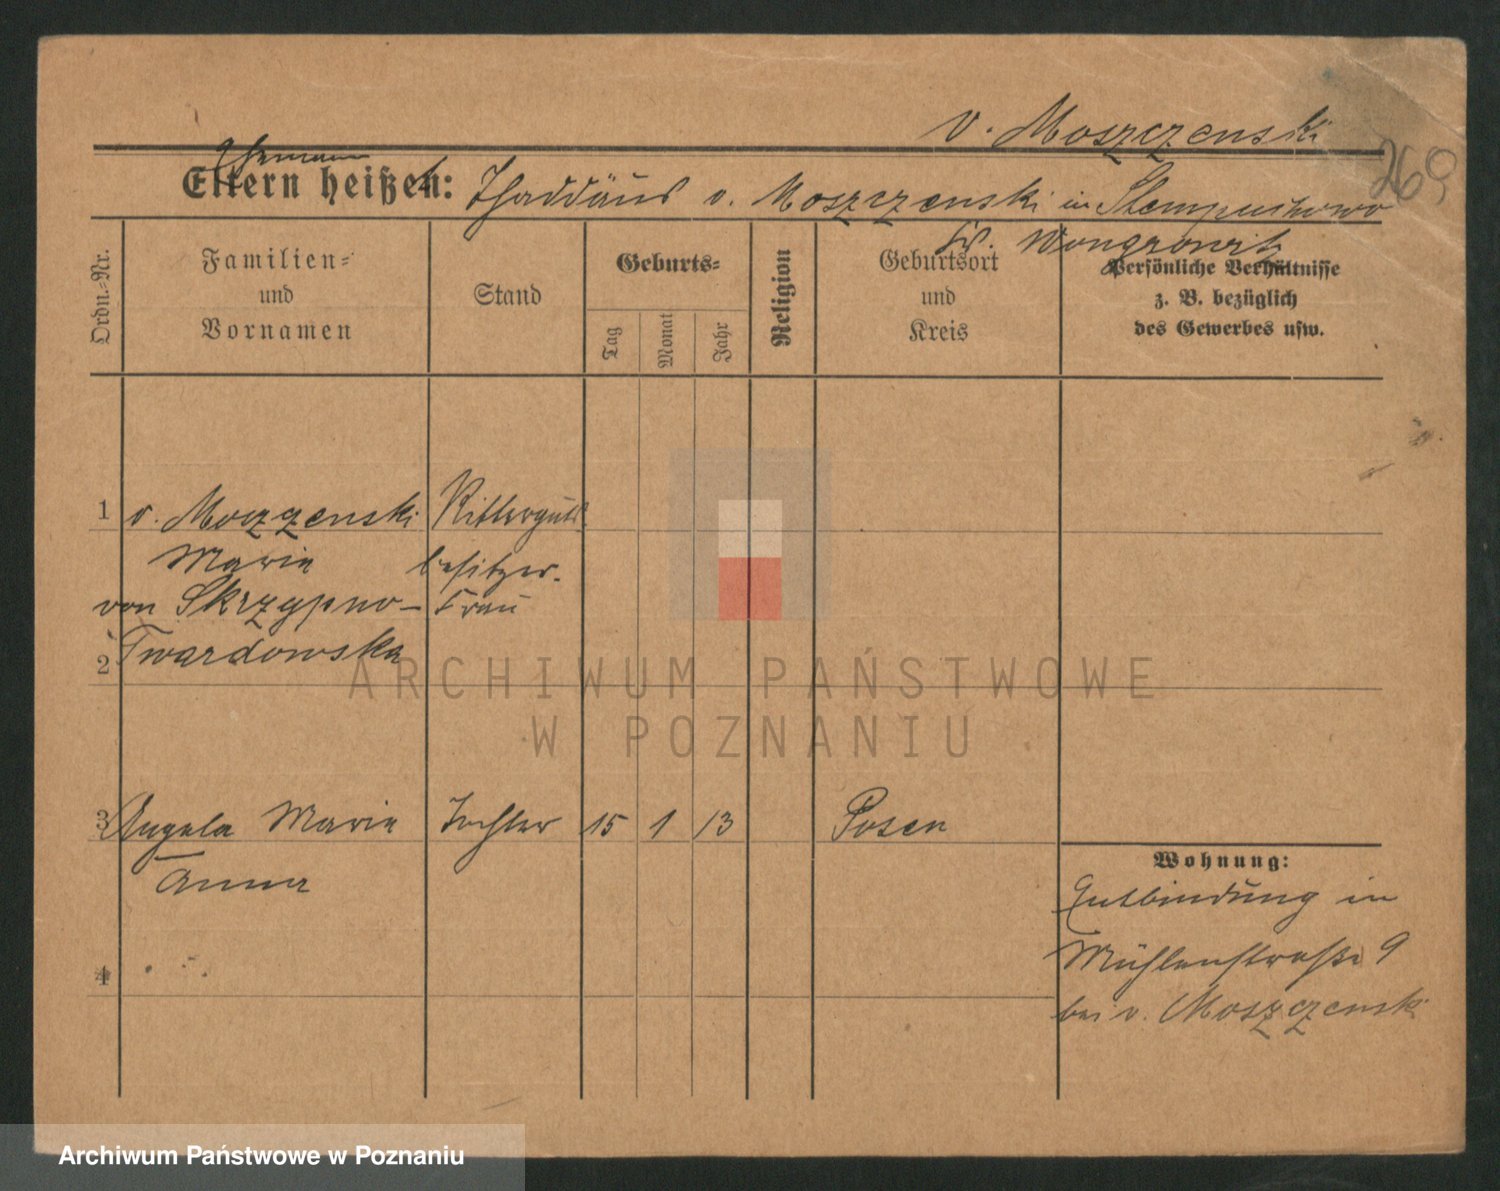 v. Moszczenski
269
Ehemann
Eltern heißen: Thaddäus v. Moszczenski in Stempuchowo
Kr. Wongrowitz
Ordn.-Nr.
Familien-
und
Vornamen
Stand
Geburts-
Tag
Monat
Jahr
Religion
Geburtsort
und
Kreis
Persönliche Verhältnisse
z. B. bezüglich
des Gewerbes usw.
1 v. Moszczenski Ritterguts
Maria besitzer-
von Skrzypno- Frau
2 Twardowska
ARCHIWUM PAŃSTWOWE
W POZNANIU
3 Angela Maria Tochter 15 1 13 Posen
Anna
4
Wohnung:
Entbindung in
Mühlenstraße 9
bei v. Moszczenski
Archiwum Państwowe w Poznaniu